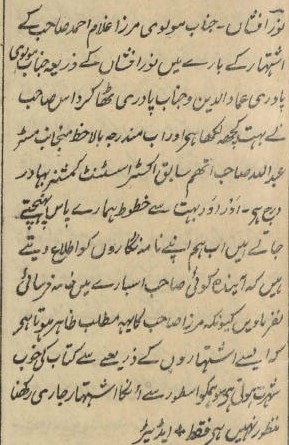 نور افشاں - جناب مولوی مرزا غلام احمد صاحب کے
اشتہار کے بارے میں نور افشاں کے ذریعہ جناب مولوی
پادری عماد الدین و جناب پادری ٹھاکر داس صاحب
نے بہت کچھ لکھا ہی اور اب مندرجہ بالا خط منجانب مسٹر
عبد اللہ صاحب اتھم سابق اکسٹرا اسسٹنٹ کمشنر بہادر
درج ہی - اور اور بہت سے خطوط ہمارے پاس پہنچتے
جاتے ہیں اب ہم اپنے نامہ نگاروں کو اطلاع دیتے
ہیں کہ آیندہ کوئی صاحب اسبارے میں خامہ فرسائی
نفرماویں کیونکہ مرزا صاحب کا یہہ مطلب ظاہر ہوتا ہی
کہ ایسے اشتہاروں کے ذریعے سے کتاب کی خوب
شہرت ہوتی ہی ہمکو اسطور سے انکا اشتہار جاری رکھنا
منظور نہیں ہی فقط + ایڈیٹر